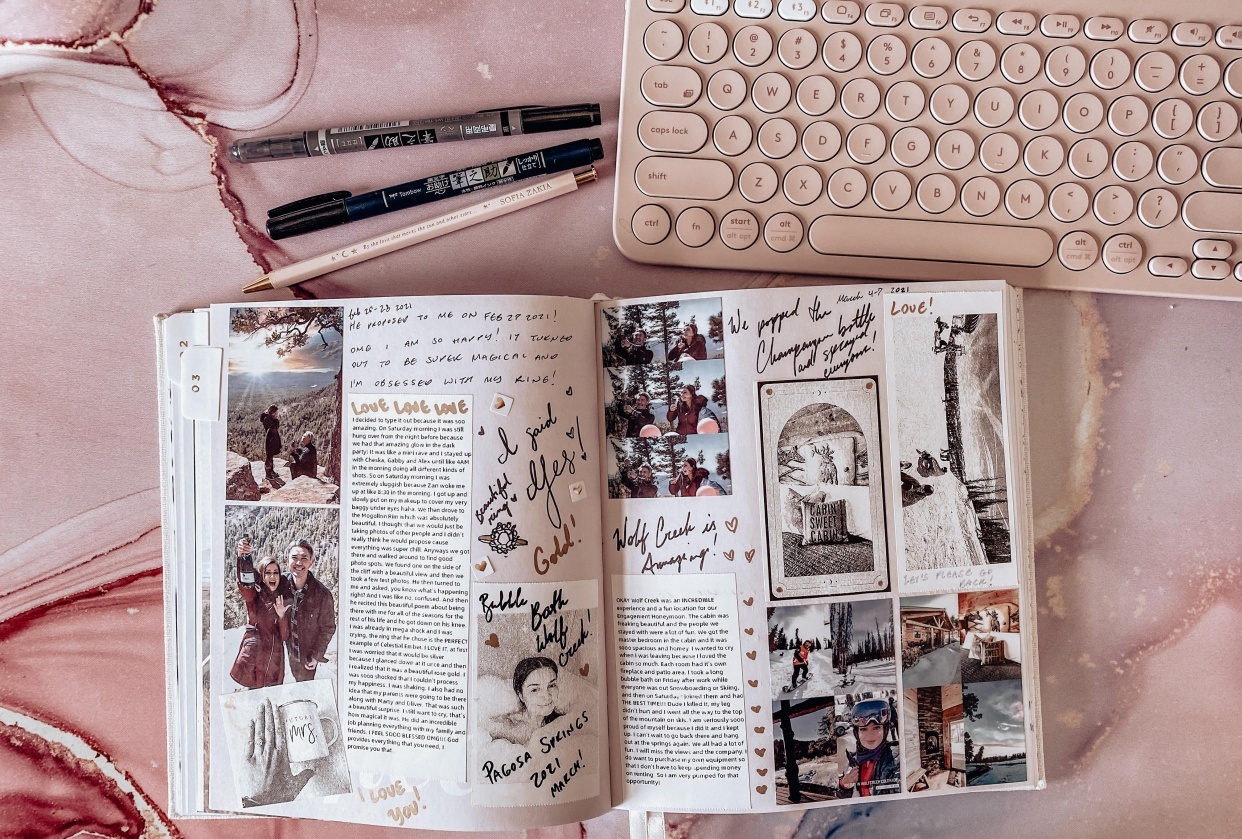 feb 26-28 2021
HE PROPOSED TO ME ON FEB 27 2021!
OMG I AM SO HAPPY! IT TURNED
OUT TO BE SUPER MAGICAL AND
I'M OBSESSED WITH MY RING!
LOVE LOVE LOVE
I decided to type it out because it was soo
amazing. On Saturday morning I was still
hung over from the night before because
we had that amazing glow in the dark
party! It was like a mini rave and I stayed up
with Cheska, Gabby and Alex until like 4AM
in the morning doing all different kinds of
shots. So on Saturday morning I was
extremely sluggish because Zan woke me
up at like 8:30 in the morning. I got up and
slowly put on my makeup to cover my very
baggy under eyes haha. We then drove to
the Mogollon Rim which was absolutely
beautiful. I thought that we would just be
taking photos of other people and I didn't
really think he would propose cause
everything was super chill. Anyways we got
there and walked around to find good
photo spots. We found one on the side of
the cliff with a beautiful view and then we
took a few test photos. He then turned to
me and asked, you know what's happening
right? And I was like no, confused. And then
he recited this beautiful poem about being
there with me for all of the seasons for the
rest of his life and he got down on his knee.
I was already in mega shock and I was
crying, the ring that he chose is the PERFECT
example of Celestial Embr. I LOVE IT, at first
I was worried that it would be silver
because I glanced down at it once and then
I realized that it was a beautiful rose gold. I
was sooo shocked that I couldn't process
my happiness. I was shaking. I also had no
idea that my parents were going to be there
along with Marty and Oliver. That was such
a beautiful surprise. I still want to cry, that's
how magical it was. He did an incredible
job planning everything with my family and
friends. I FEEL SOOO BLESSED OMG!!! God
provides everything that you need, I
promise you that.
I said
Yes!
Beautiful
ring!
Gold!
Bubble
Bath
Wolf
Creek!
PAGOSA SPRINGS
2021
MARCH!
mrs.
I LOVE
YOU!
03
March 4-7 2021
We popped the
Champagne bottle
and sprayed
everyone!
LOVE!
Wolf Creek is
Amazing!
OKAY Wolf Creek was an INCREDIBLE
experience and a fun location for our
Engagement Honeymoon. The cabin was
freaking beautiful and the people we
stayed with were a lot of fun. We got the
master bedroom in the cabin and it was
sooo spacious and homey. I wanted to cry
when I was leaving because I loved the
cabin so much. Each room had it's own
fireplace and patio area. I took a long
bubble bath on Friday after work while
everyone was out Snowboarding or Skiing,
and then on Saturday I joined them and had
THE BEST TIME!!! Dude I killed it, my leg
didn't hurt and I went all the way to the top
of the mountain on skis. I am seriously sooo
proud of myself because I did it and I kept
up. I can't wait to go back there and hang
out at the springs again. We all had a lot of
fun. I will miss the views and the company. I
do want to purchase my own equipment so
that I don't have to keep spending money
on renting. So I am very pumped for that
opportunity!
CABIN
SWEET
CABIN
LET'S PLEASE GO
BACK!
Tombow
Be the love that meets the sun and other stars
SOFIA ZAKIA
~ ` ! 1 @ 2 # 3 $ 4 % 5 ^ 6 & 7 * 8 ( 9 ) 0 _ - + =
tab Q W E R T Y U I O P { [ } ]
caps lock A S D F G H J K L : ; " '
shift Z X C V B N M < , > . ? /
ctrl fn start alt opt alt cmd ⌘ alt cmd ⌘ ctrl alt opt